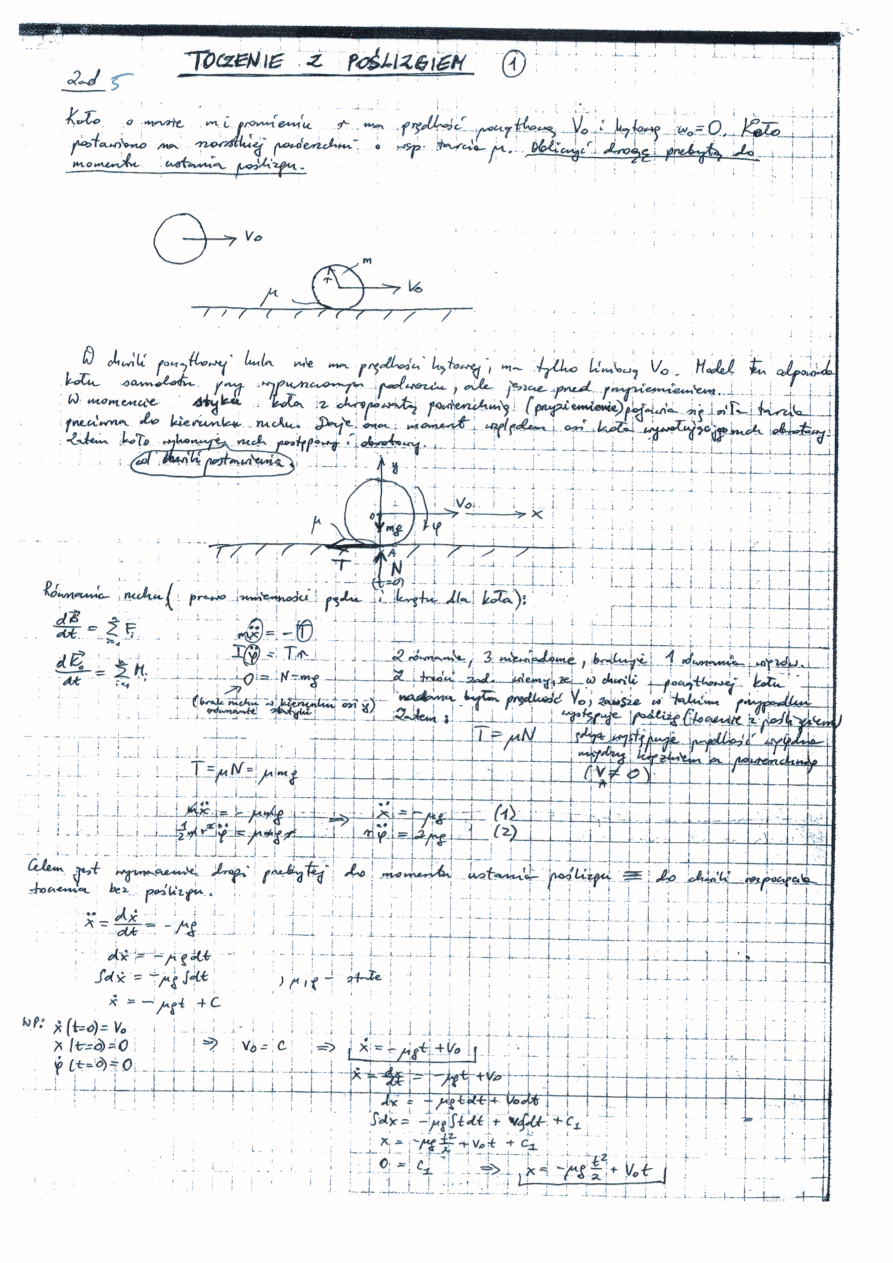 TOCZENIE Z POŚLIZGIEM 1
Zad 5
Koło o masie m i promieniu r ma prędkość początkową V0 i kątową ω0=0. Koło
postawiono na szorstkiej powierzchni o wsp. tarcia μ. Obliczyć drogę przebytą do
momentu ustania poślizgu.
V0
m
r
μ
V0
W chwili początkowej kula nie ma prędkości kątowej, ma tylko liniową V0. Model ten odpowiada
kołu samolotu przy wypuszczonym podwoziu, ale jeszcze przed przyziemieniem.
W momencie styku koła z chropowatą powierzchnią (przyziemienie) pojawia się siła tarcia
przeciwna do kierunku ruchu. Daje ona moment względem osi koła wywołujący ruch obrotowy.
Zatem koło wykonuje ruch postępowy i obrotowy.
od chwili postawienia
y
V0
x
0
mg
φ
μ
A
T
N
(t=0)
Równania ruchu (prawo zmienności pędu i krętu dla koła):
dB/dt = Σ Fi
mẍ = -T
dK0/dt = Σ Mi
Iφ̈ = Tr
0 = N-mg
(brak ruchu w kierunku osi y)
równanie statyki
2 równanie, 3 niewiadome, brakuje 1 równania więzów.
Z treści zad. wiemy, że w chwili początkowej kołu
nadana była prędkość V0, zawsze w takim przypadku
występuje poślizg (toczenie z poślizgiem)
Zatem:
T = μN
gdyż występuje prędkość względna
między łącznikiem a powierzchnią
(VA ≠ 0)
T = μN = μmg
mẍ = -μmg ⇒ ẍ = -μg (1)
½mr²φ̈ = μmgr rφ̈ = 2μg (2)
Celem jest wyznaczenie drogi przebytej do momentu ustania poślizgu ≡ do chwili rozpoczęcia
toczenia bez poślizgu.
ẍ = dẋ/dt = -μg
dẋ = -μgdt
∫dẋ = -μg∫dt , μ,g - stałe
ẋ = -μgt + C
WP: ẋ(t=0) = V0
x(t=0)=0 ⇒ V0 = C ⇒ ẋ = -μgt + V0
φ̇(t=0)=0
ẋ = dx/dt = -μgt + V0
dx = -μgtdt + V0dt
∫dx = -μg∫tdt + V0∫dt + C1
x = -μg t²/2 + V0t + C1
0 = C1 ⇒ x = -μg t²/2 + V0t